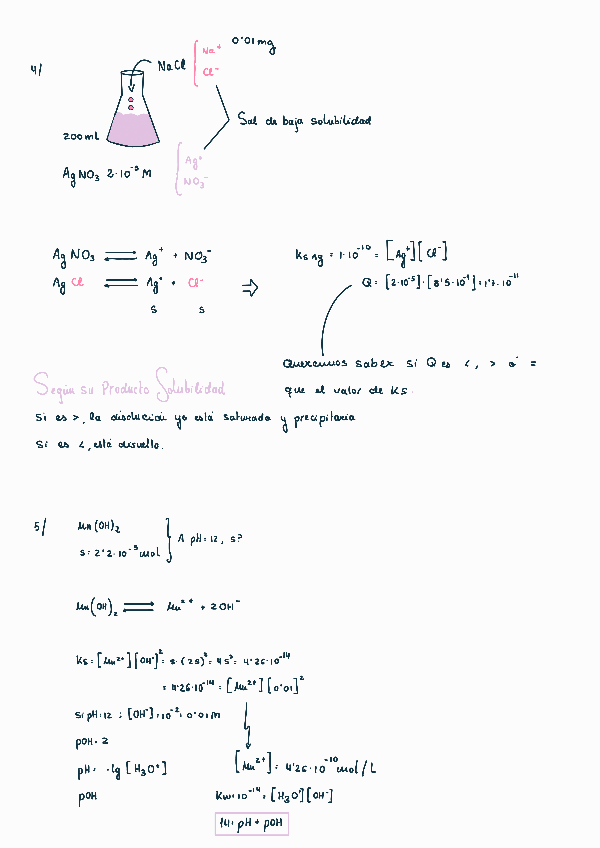 4/
NaCl
Na⁺
Cl⁻
0'01mg
200ml
Sal de baja solubilidad
AgNO₃ 2·10⁻⁵ M
Ag⁺
NO₃⁻
AgNO₃ ⇌ Ag⁺ + NO₃⁻
AgCl ⇌ Ag⁺ + Cl⁻ ⇒
s s
Ks Ag = 1·10⁻¹⁰ = [Ag⁺][Cl⁻]
Q = [2·10⁻⁵]·[8'5·10⁻⁷] = 1'7·10⁻¹¹
Queremos saber si Q es <, > ó =
que el valor de Ks.
Según su Producto Solubilidad
Si es >, la disolución ya está saturada y precipitaría
Si es <, está disuelto.
5/
Mn(OH)₂
s = 2'2·10⁻⁵ mol
A pH = 12, s?
Mn(OH)₂ ⇌ Mn²⁺ + 2OH⁻
Ks = [Mn²⁺][OH⁻]² = s·(2s)² = 4s³ = 4'26·10⁻¹⁴
= 4'26·10⁻¹⁴ = [Mn²⁺][0'01]²
Si pH = 12 ; [OH⁻] = 10⁻² = 0'01 M
pOH = 2
pH = -lg [H₃O⁺]
[Mn²⁺] = 4'26·10⁻¹⁰ mol/L
pOH
Kw = 10⁻¹⁴ = [H₃O⁺][OH⁻]
14 = pH + pOH